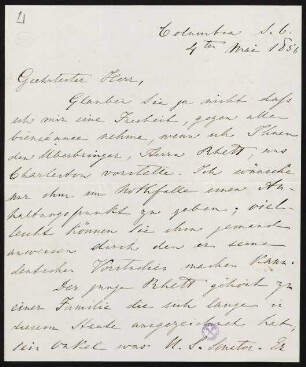 Columbia S. C.
4ten Mai 1856
Geehrtester Herr,
Glauben Sie ja nicht dass
ich mir eine Freiheit, gegen alle
bienséance nehme, wenn ich Ihnen
den Überbringer, Herrn Rhett, aus
Charleston vorstelle. Ich wünsche
nur ihm im Nothfalle einen An-
haltungspunkt zu geben; viel-
leicht können Sie ihm jemand
anweisen durch den er seine
deutschen Vorstudien machen kann.
Der junge Rhett gehört zu
einer Familie die sich lange in
diesem Lande ausgezeichnet hat,
sein Onkel was U. S. Senator. Er